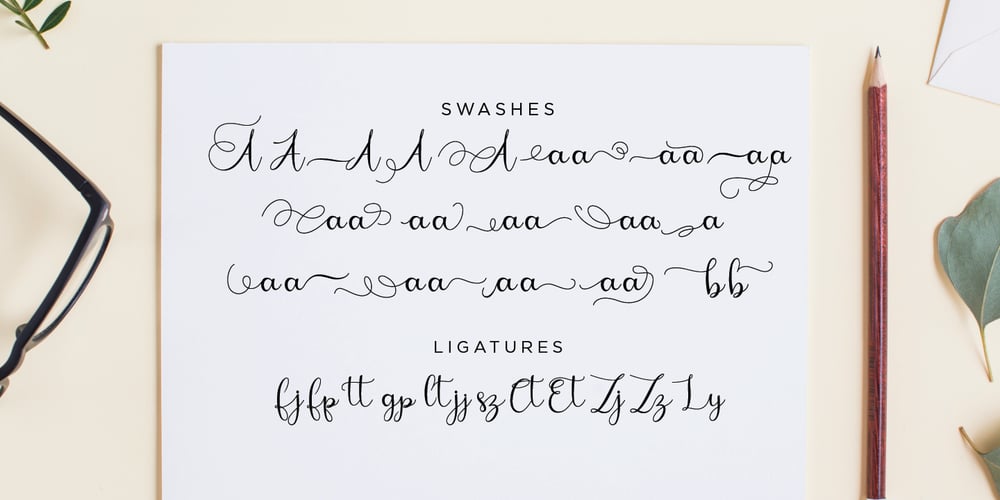 SWASHES
A A A A A aa aa aa
aa aa aa aa a
aa aa aa aa bb
LIGATURES
fj fp tt gp lt jj sz Ct Et Zj Zz Ly